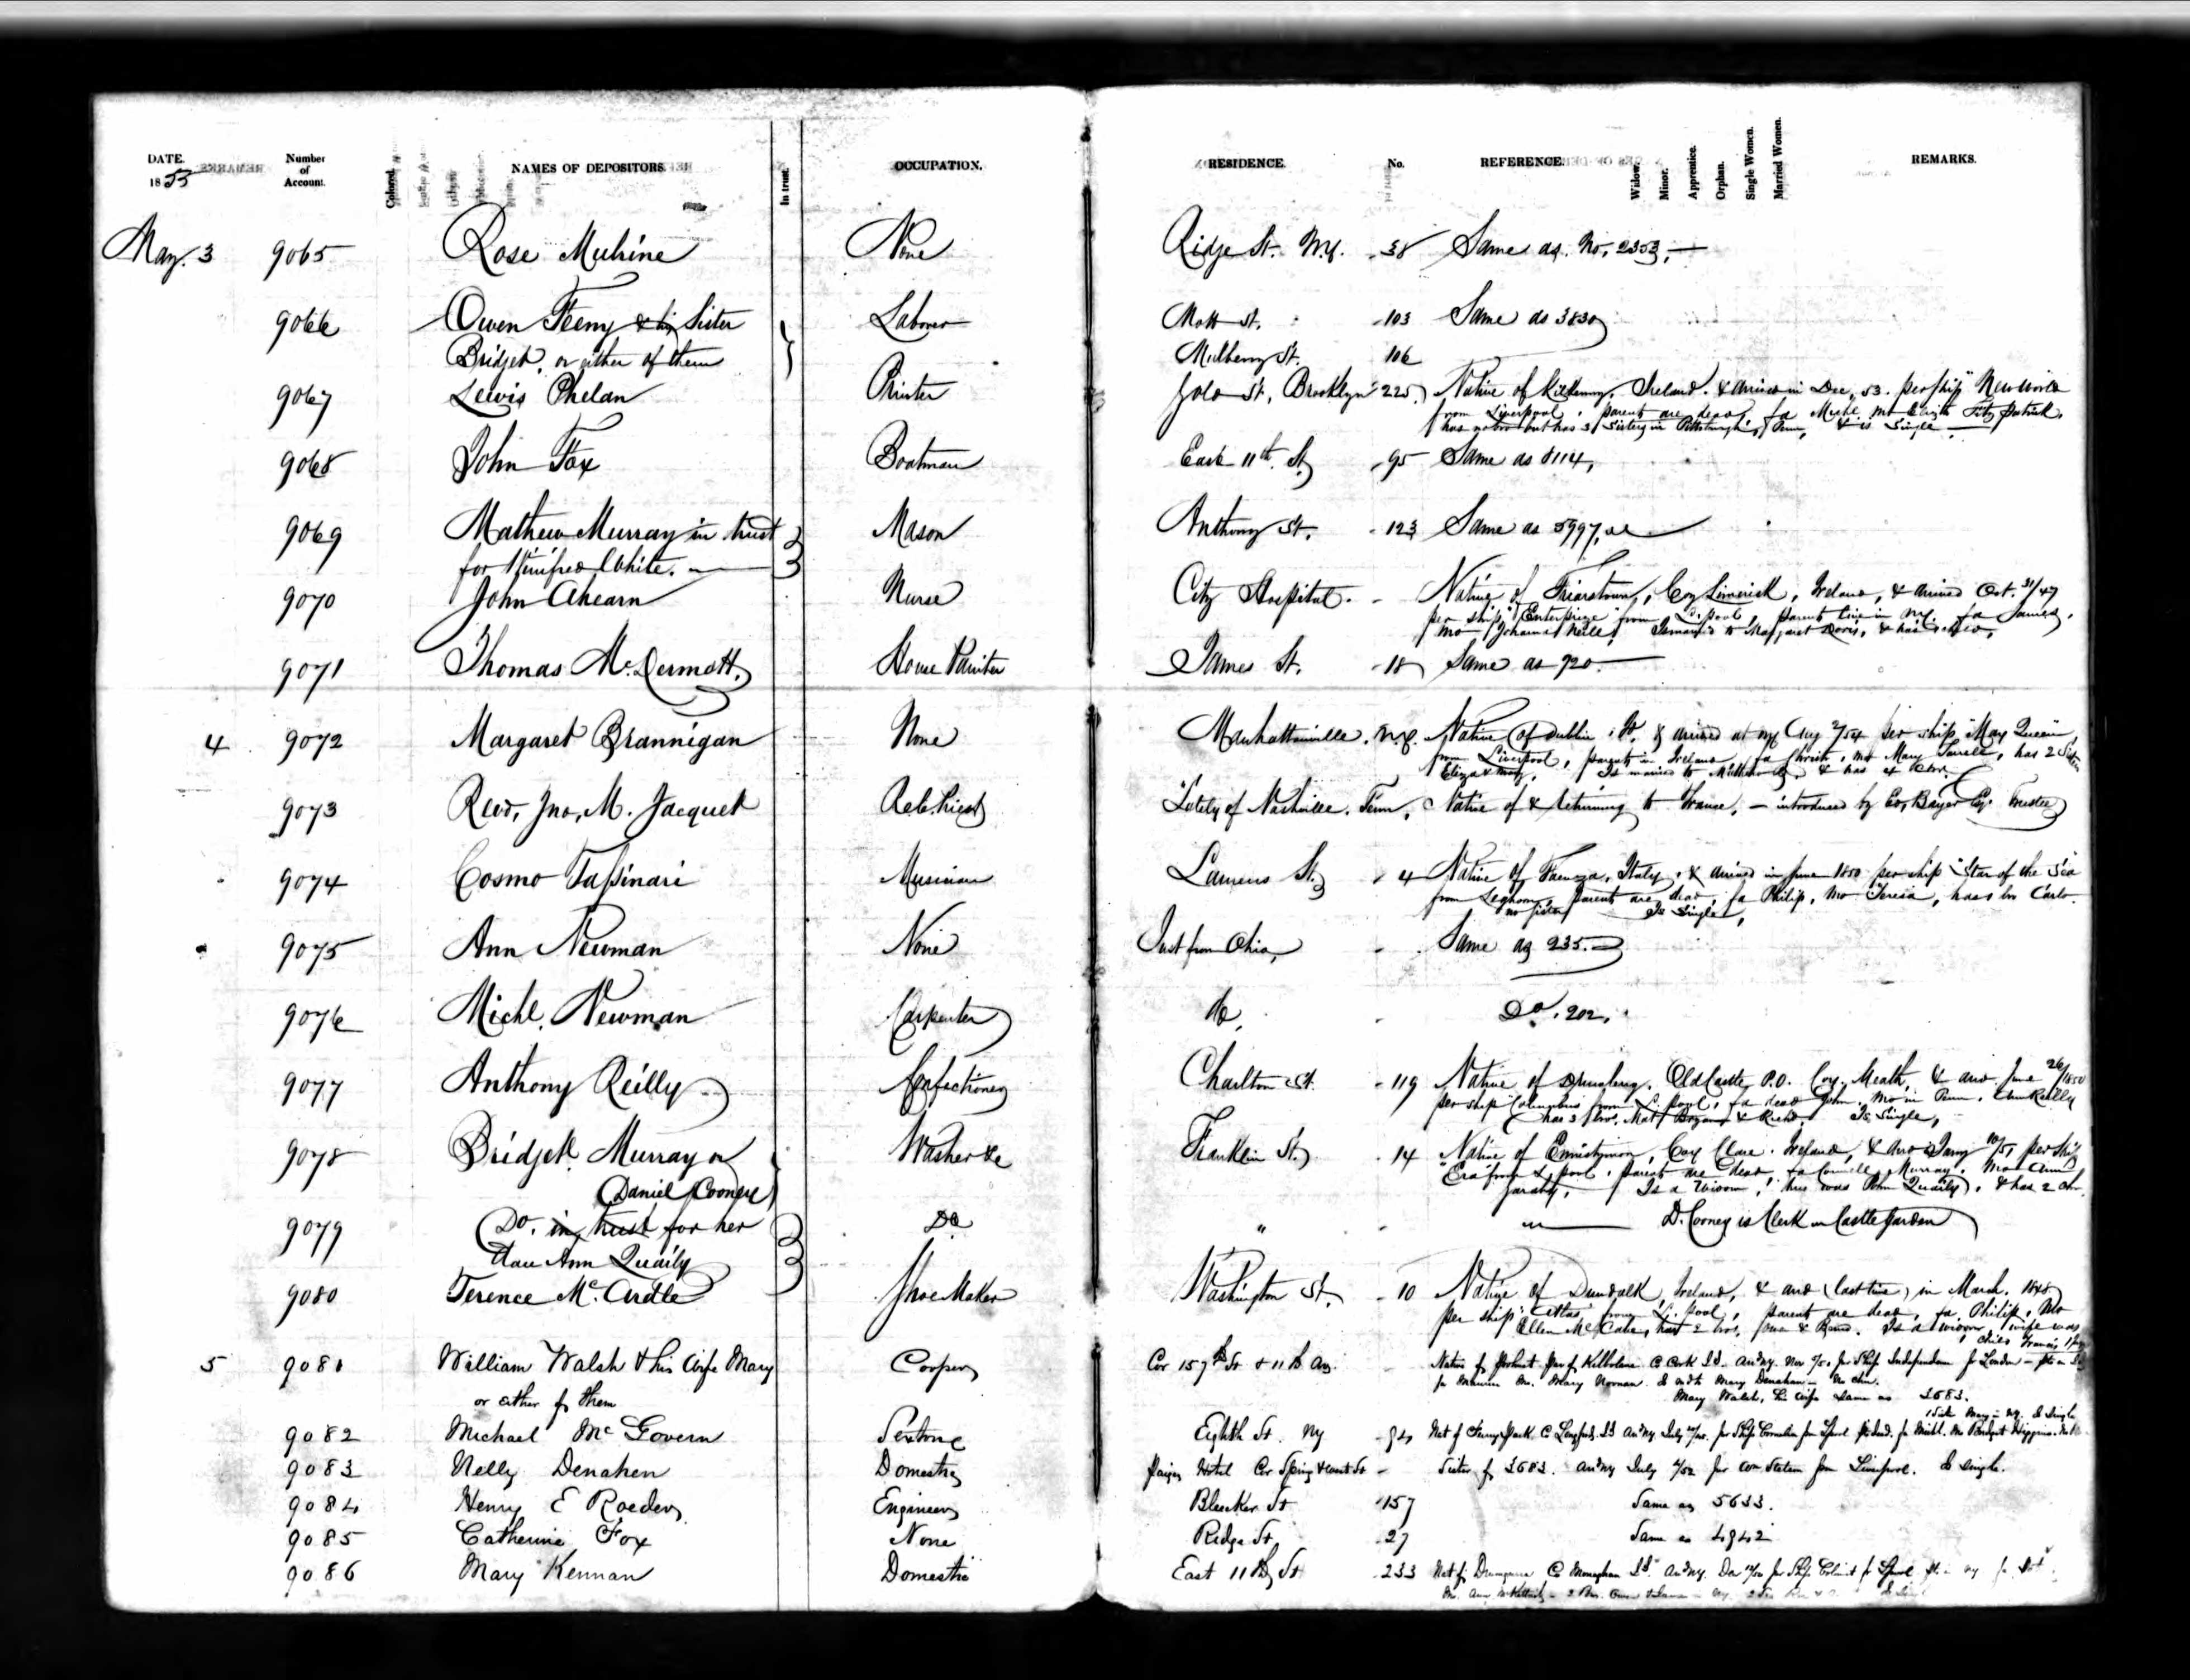 DATE. Number of Account. Colored. NAMES OF DEPOSITORS. In trust. OCCUPATION. RESIDENCE. No. REFERENCE. Widow. Minor. Apprentice. Orphan. Single Women. Married Women. REMARKS.
1855
May. 3 9065 Rose Mulrine None Ridge St. N.Y. 38 Same as No. 2353.
9066 Owen Feeny & his Sister Laborer Mott St. 103 Same as 3830
Bridget, or either of them Mulberry St. 106
9067 Lewis Phelan Printer Gold St, Brooklyn 225 Native of Kilkenny, Ireland. & arrived in Dec. 53. per ship "New World
from Liverpool, parents are dead, fa Michl. mo Fitzpatrick,
has no bro but has 3 Sisters in Pittsburgh, Penn, & is Single
9068 John Fox Boatman East 11th St 95 Same as 8114,
9069 Mathew Murray in trust Mason Anthony St. 123 Same as 5997,
for Winifred White.
9070 John Ahearn Nurse City Hospital. Native of Friarstown, Coy Limerick, Ireland, & arrived Oct. 31/47
per ship "Enterprize" from L.pool, parents live in NY. fa James,
mo Johanna Neill, Is married to Margaret Davis, & has
9071 Thomas McDermott, House Painter James St. 18 Same as 920.
4 9072 Margaret Brannigan None Manhattanville. N.Y. Native of Dublin, & arrived at NY Aug 2/54 per ship "May Queen",
from Liverpool, parents in Ireland, fa Christr, mo Mary, has 2 Sisters
Eliza & Mary, Is married to & has 4 Chn.
9073 Revd, Jno, M. Jacquet R.C. Priest Lately of Nashville. Tenn, Native of & returning to France, – introduced by Esq. Trustee
9074 Cosmo Tassinari Musician Laurens St. 4 Native of Faenza, Italy, & arrived in June 1850 per ship "Star of the Sea
from Leghorn, parents are dead, fa Philip, mo Teresa, has 1 bro Carlo.
no Sister Is Single,
9075 Ann Newman None Just from Ohio, Same as 235.
9076 Michl. Newman Carpenter do, Do. 202.
9077 Anthony Reilly Confectioner Charlton St. 119 Native of OldCastle P.O. Coy. Meath, & arrd June 26/1850
per ship "Columbus from L.pool, fa dead John. mo in Penn. Ann Reilly
has 3 bro. Matt Bryan & Richd. Is Single,
9078 Bridget Murray or Washer &c Franklin St. 14 Native of Ennistymon, Coy Clare. Ireland, & arrd Jany 10/51 per ship
Daniel Cooney "Era" from L.pool, parents are dead, fa Connell Murray. mo Ann
Is a Widow, hus was John Quaily, & has 2 chn.
9079 Do. in trust for her Do " D. Cooney is Clerk in Castle Garden
dau Ann Quaily
9080 Terence McArdle Shoe Maker Washington St. 10 Native of Dundalk, Ireland, & arrd (last time) in March. 1848
per ship "Atlas" from L.pool, parents are dead, fa Philip, mo
Ellen McCabe, has 2 bro, Is a widower, wife was
5 9081 William Walsh & his Wife Mary Cooper Cor 157th St & 11th Av. Native of Co Cork Ar NY. Nov per Ship Independence fr London
or either of them fa Maurice Mo. Mary Noonan. Is md to Mary Denahen – No chn.
Mary Walsh, his wife same as 3683.
9082 Michael McGovern Sexton Eighth St. NY 84 Nat of C Longford Ar NY July per Ship Cornelia from Lpool fa Michl. Mo Bridget Higgins.
9083 Nelly Denahen Domestic Hotel Cor Spring & St Sister of 3683. Ar NY July 4/52 per Con. Statem from Liverpool. Is Single.
9084 Henry E Roeder Engineer Bleecker St 157 Same as 5633.
9085 Catherine Fox None Ridge St 27 Same as 4942
9086 Mary Kennan Domestic East 11th St 233 Nat of C Monaghan Ar NY. per Ship fr Lpool